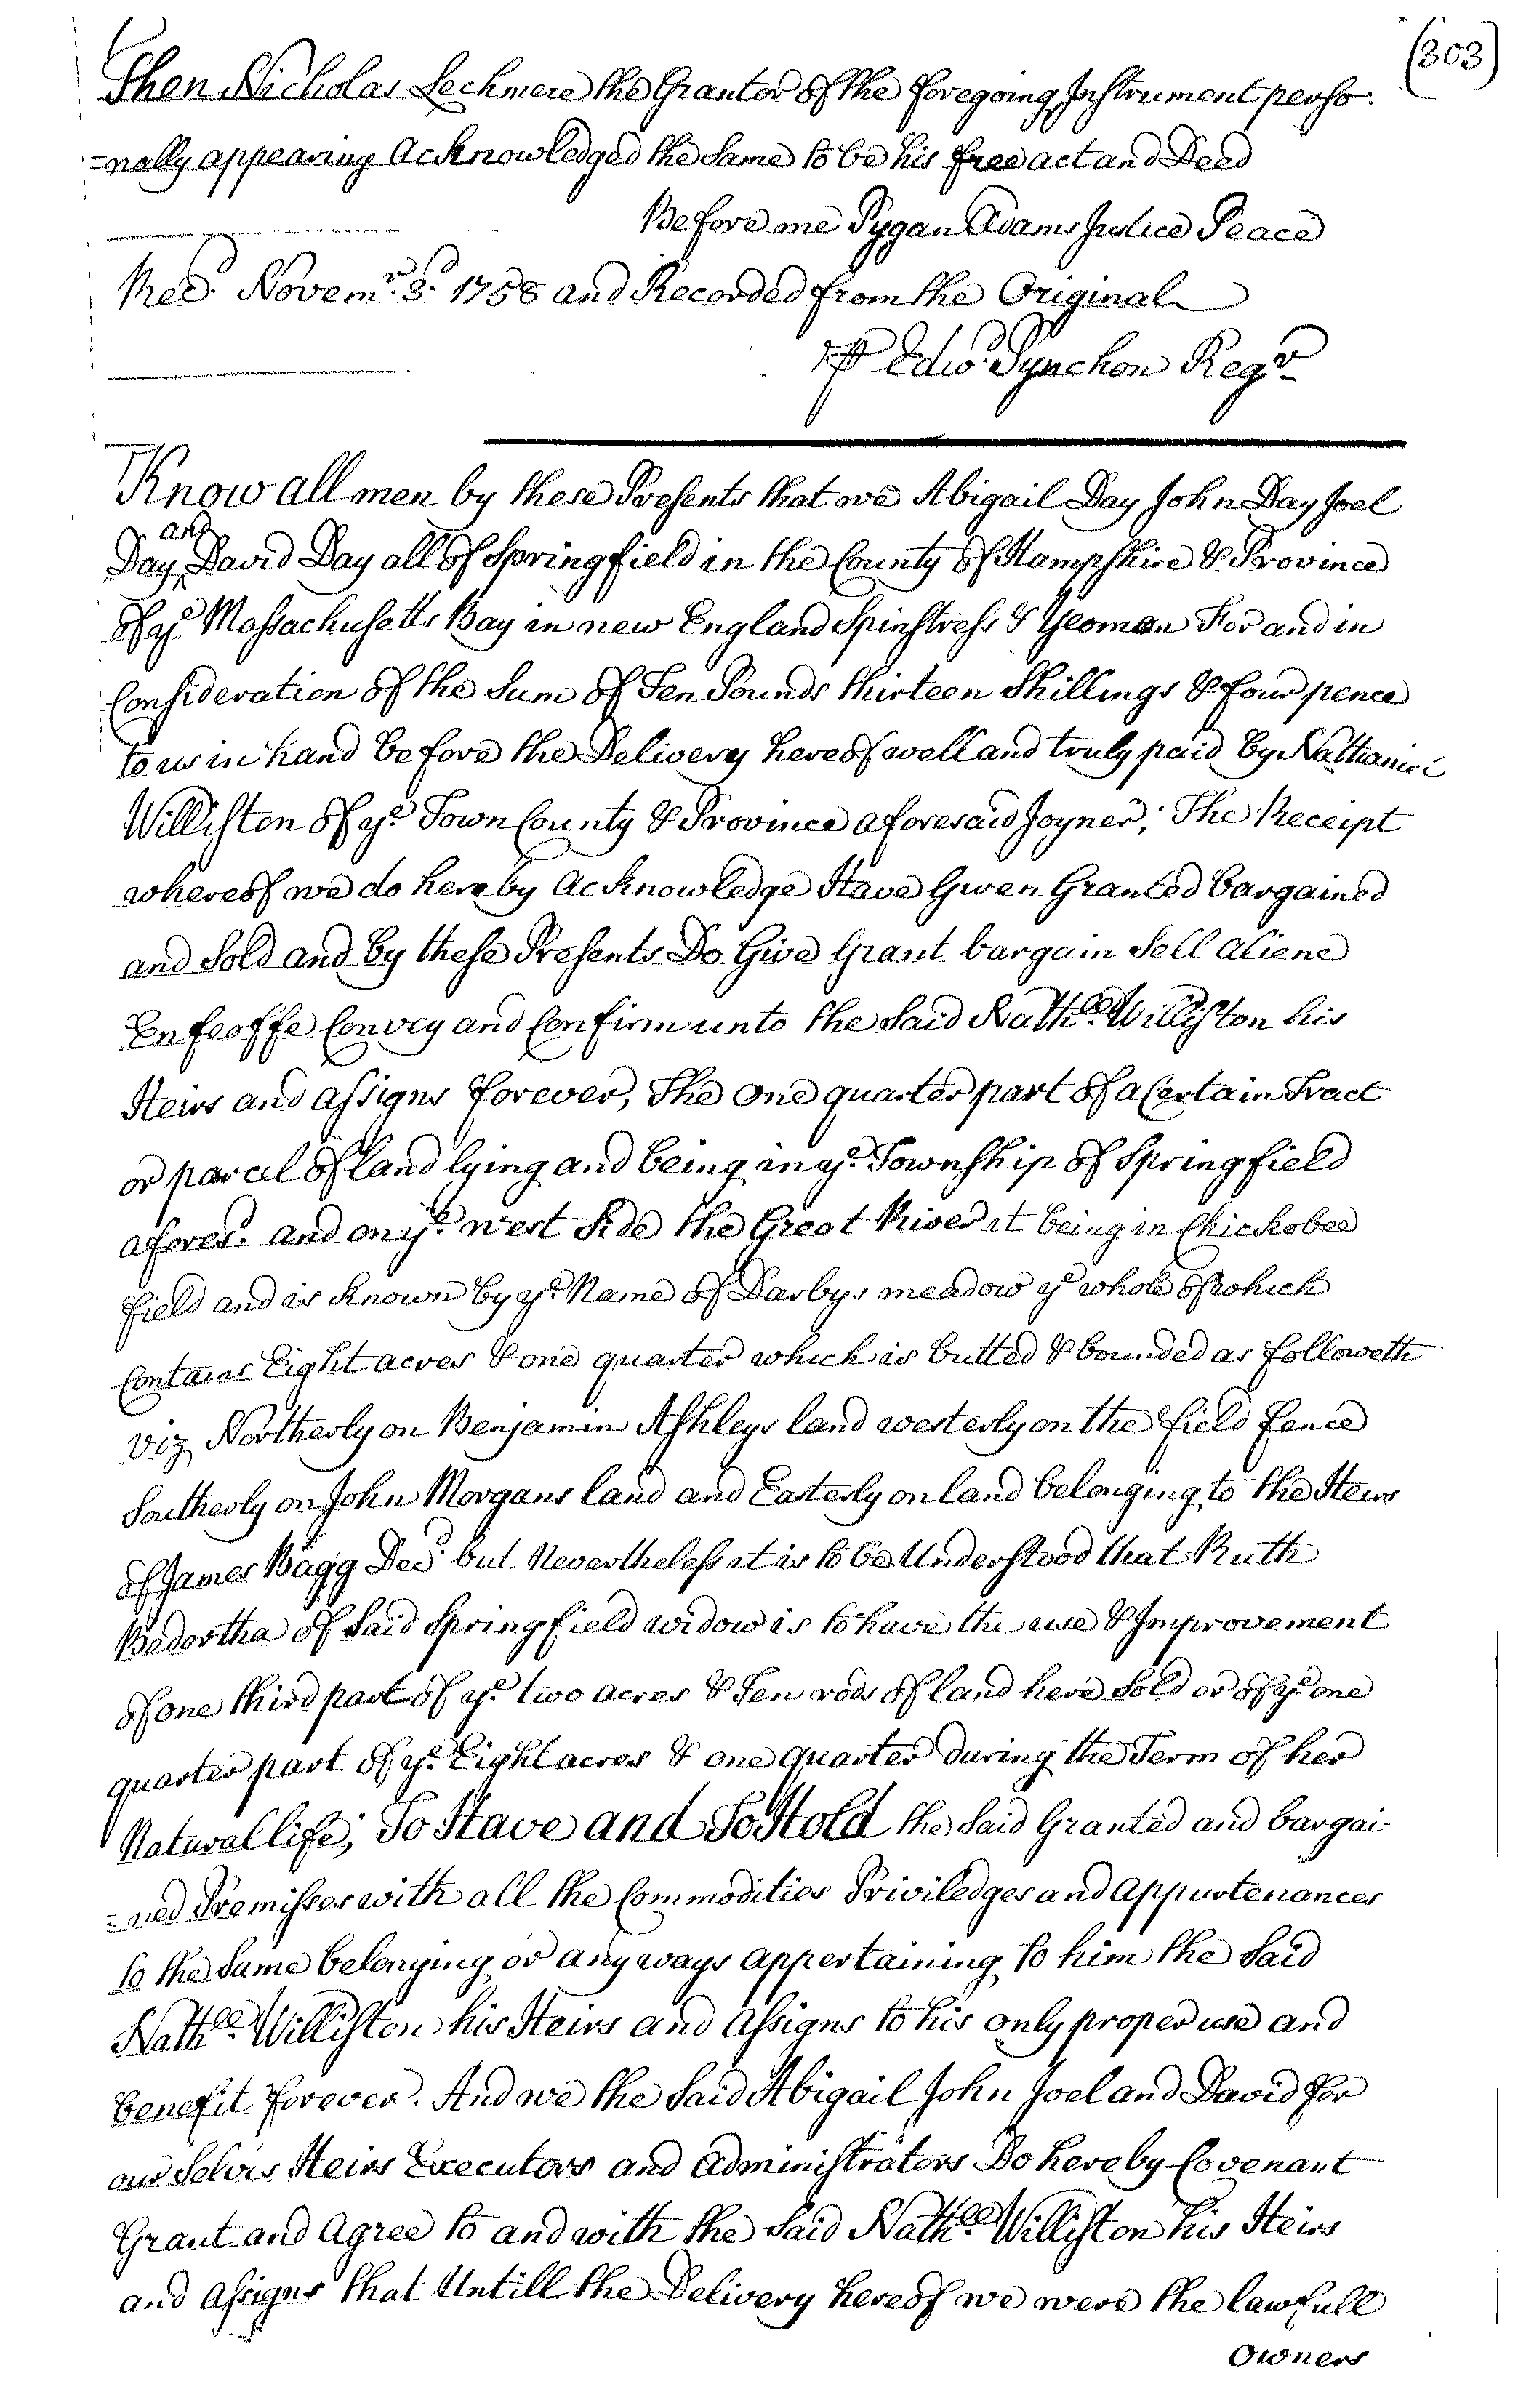 (303)
Then Nicholas Lechmere the Grantor of the foregoing Instrument perso-
=nally appearing acknowledged the same to be his free act and Deed
Before me Pygan Adams Justice Peace
Recd. Novemr. 3d. 1758 and Recorded from the Original
⅌ Edwd Pynchon Regr
Know all men by these Presents that we Abigail Day John Day Joel
Day and David Day all of Springfield in the County of Hampshire & Province
of ye. Massachusetts Bay in new England Spinstress & Yeoman For and in
Consideration of the Sum of Ten Pounds thirteen Shillings & four pence
to us in hand before the Delivery hereof well and truly paid by Nathaniel
Williston of ye. Town County & Province aforesaid Joyner; The Receipt
whereof we do hereby acknowledge Have Given Granted bargained
and Sold and by these Presents Do Give Grant bargain Sell aliene
Enfeoffe Convey and Confirm unto the Said Nathll. Williston his
Heirs and assigns forever, The one quarter part of a Certain Tract
or parcel of land lying and being in ye. Township of Springfield
afores.d and on ye. west Side the Great River it being in Chickobee
field and is known by ye. Name of Darbys meadow ye whole of which
Contains Eight acres & one quarter which is butted & bounded as followeth
viz Northerly on Benjamin Ashleys land westerly on the field fence
Southerly on John Morgans land and Easterly on land belonging to the Heirs
of James Bagg Decd. but Nevertheless it is to be Understood that Ruth
Bedortha of Said Springfield widow is to have the use & Improvement
of one third part of ye. two acres & Ten rods of land here Sold or of ye. one
quarter part of ye. Eight acres & one quarter during the Term of her
Natural life; To Have and To Hold the Said Granted and bargai-
=ned Premisses with all the Commodities Priviledges and appurtenances
to the Same belonging or any ways appertaining to him the Said
Nathll. Williston his Heirs and assigns to his only proper use and
benefit forever. And we the Said Abigail John Joel and David for
our Selves Heirs Executors and administrators Do hereby Covenant
Grant and Agree to and with the Said Nathll. Williston his Heirs
and assigns that Untill the Delivery hereof we were the lawfull
Owners